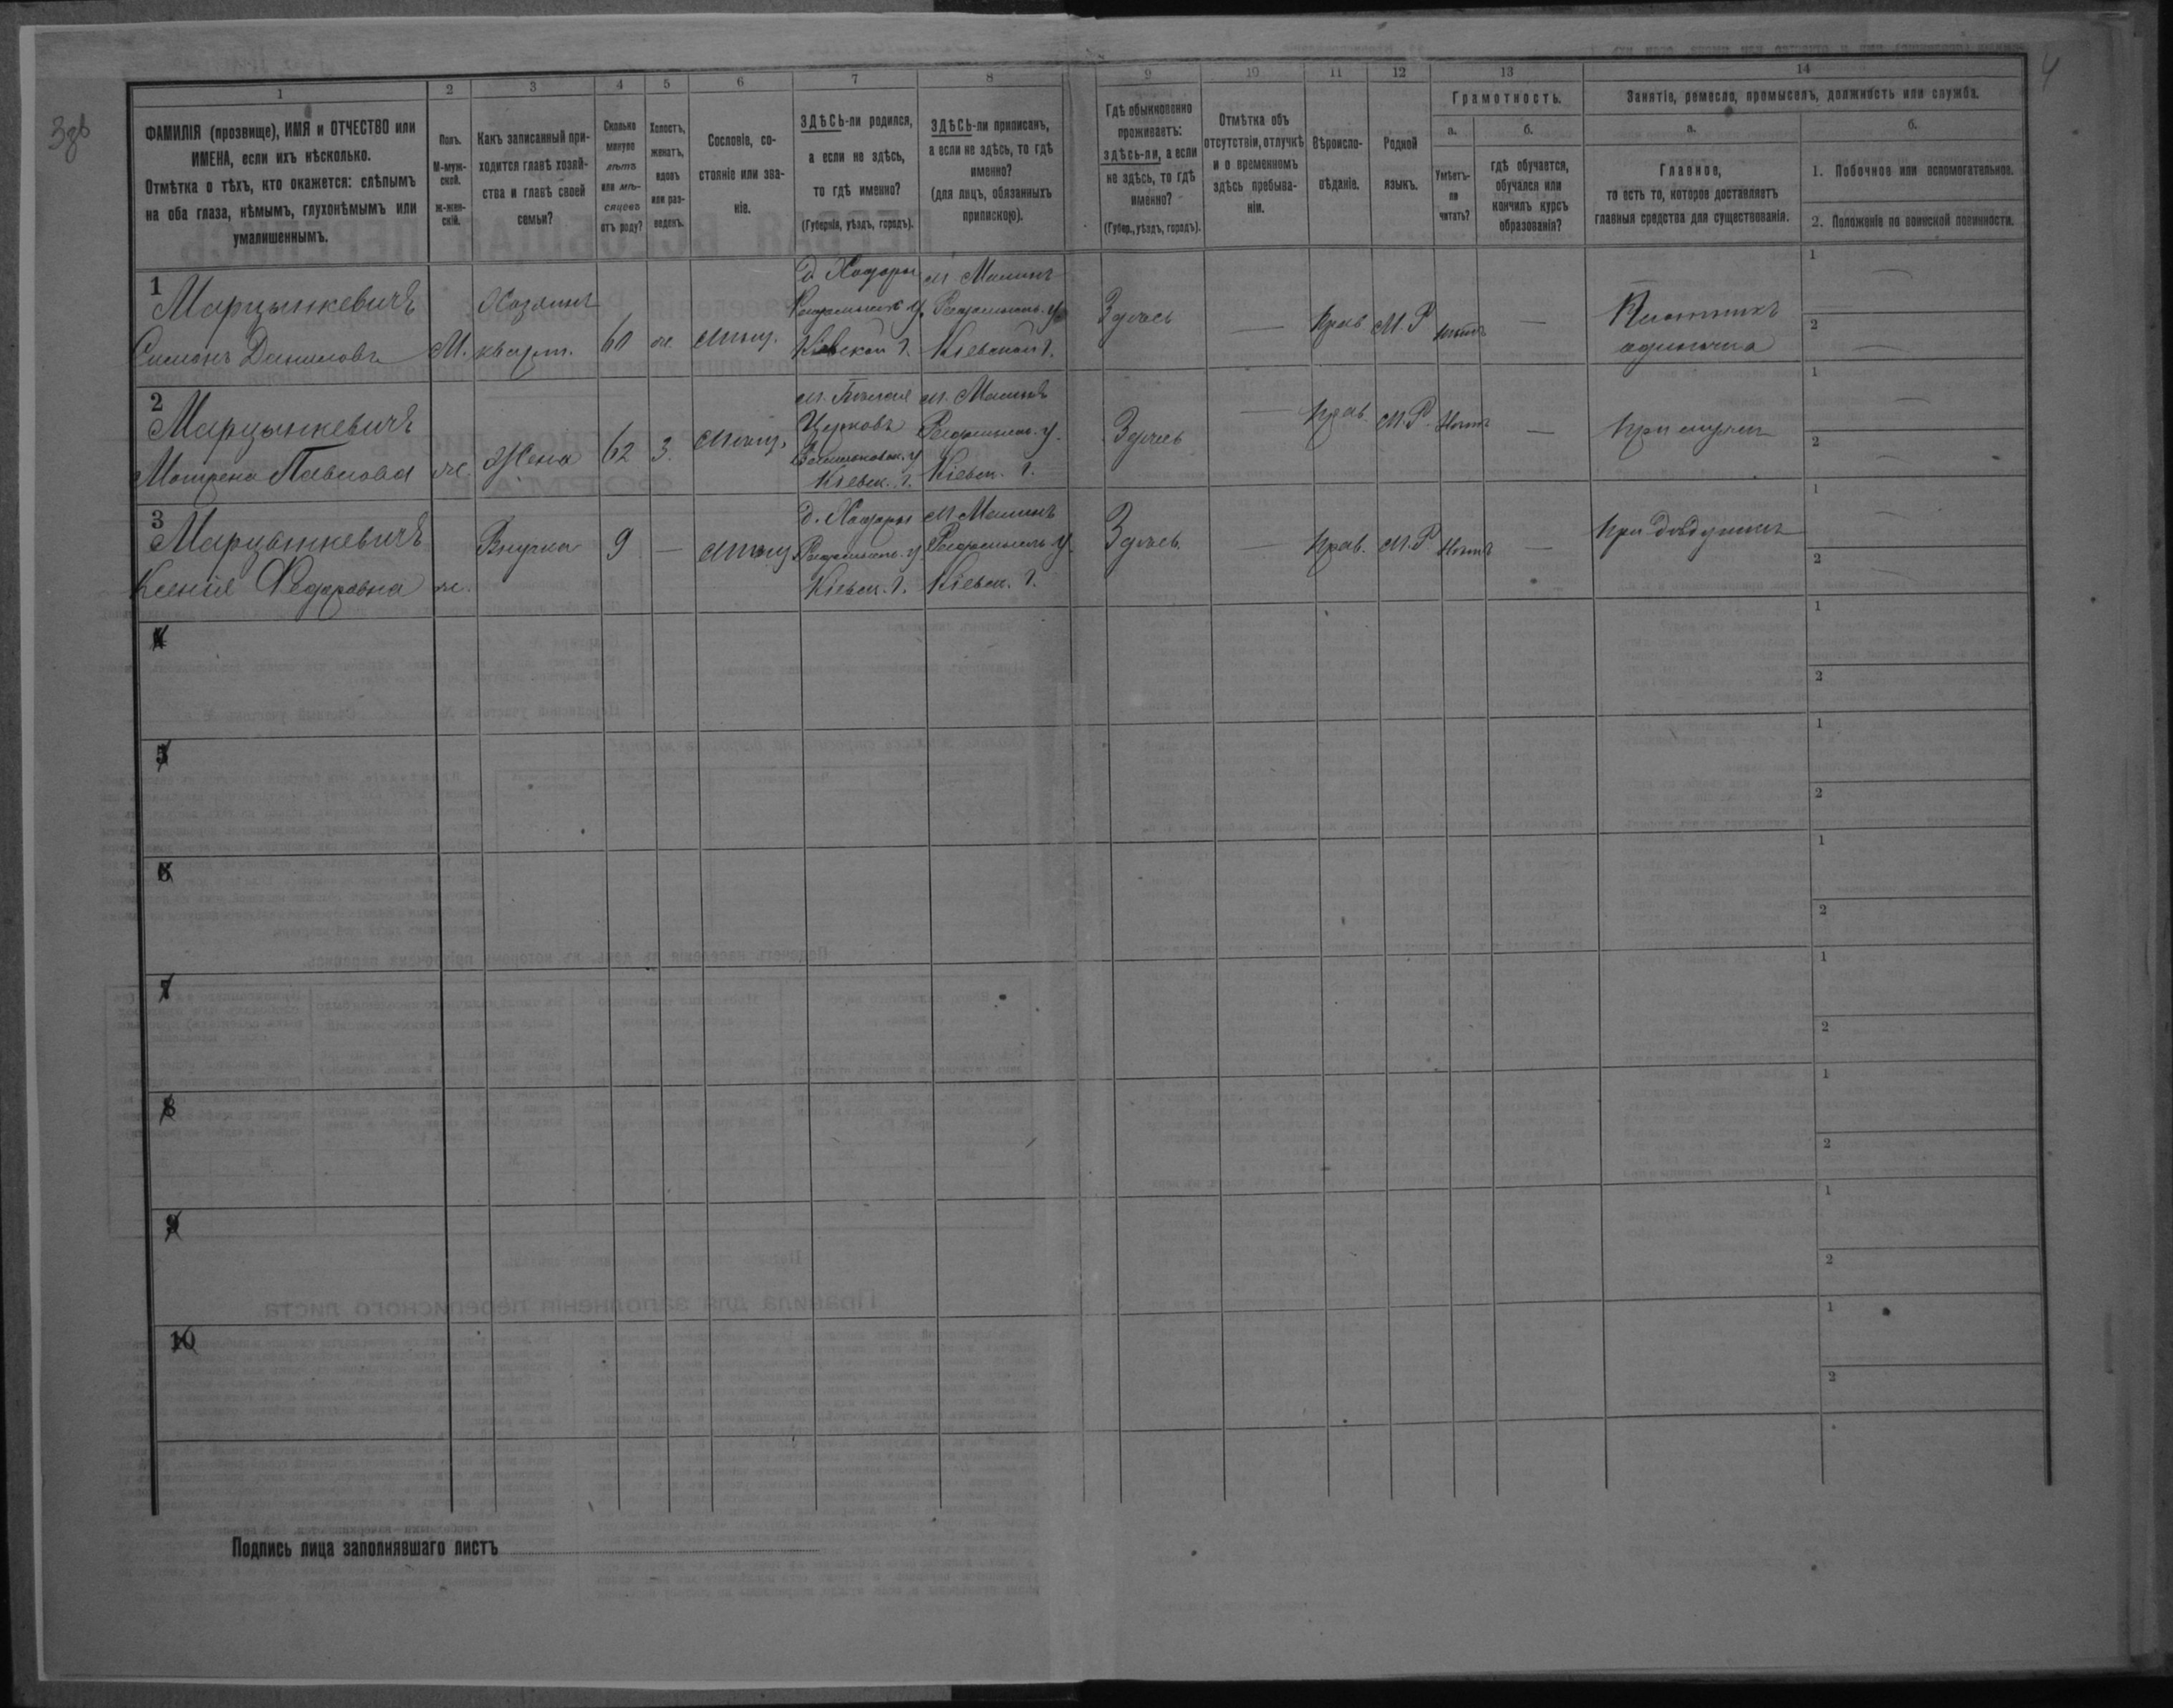 3зв
4
1
2
3
4
5
6
7
8
9
10
11
12
13
14
ФАМИЛІЯ (прозвище), ИМЯ и ОТЧЕСТВО или
ИМЕНА, если ихъ нѣсколько.
Отмѣтка о тѣхъ, кто окажется: слѣпымъ
на оба глаза, нѣмымъ, глухонѣмымъ или
умалишеннымъ.
Полъ.
М-муж-
ской.
ж-жен-
скій.
Какъ записанный при-
ходится главѣ хозяй-
ства и главѣ своей
семьи?
Сколько
минуло
лѣтъ
или мѣ-
сяцевъ
отъ роду?
Холостъ,
женатъ,
вдовъ
или раз-
веденъ.
Сословіе, со-
стояніе или зва-
ніе.
ЗДѢСЬ-ли родился,
а если не здѣсь,
то гдѣ именно?
(Губернія, уѣздъ, городъ).
ЗДѢСЬ-ли приписанъ,
а если не здѣсь, то гдѣ
именно?
(для лицъ, обязанныхъ
припискою).
Гдѣ обыкновенно
проживаетъ:
здѣсь-ли, а если
не здѣсь, то гдѣ
именно?
(Губер., уѣздъ, городъ).
Отмѣтка объ
отсутствіи, отлучкѣ
и о временномъ
здѣсь пребыва-
ніи.
Вѣроиспо-
вѣданіе.
Родной
языкъ.
Грамотность.
а.
Умѣетъ-
ли
читать?
б.
гдѣ обучается,
обучался или
кончилъ курсъ
образованія?
Занятіе, ремесло, промыселъ, должность или служба.
а.
Главное,
то есть то, которое доставляетъ
главныя средства для существованія.
б.
1. Побочное или вспомогательное.
2. Положеніе по воинской повинности.
1
Марцынкевичъ
Симонъ Даниловъ
М.
Хозяинъ
кварт.
60
ж.
Мѣщ.
д. Ходоры
Радомысл. у.
Кіевской г.
м. Малинъ
Радомысл. у.
Кіевской г.
Здѣсь
—
Прав.
М. Р
нѣтъ
—
одиночка
1 —
2 —
2
Марцынкевичъ
Мотрена Павлова
ж.
Жена
62
З.
Мѣщ.
м. Бѣлая
Церковь
Васильковск. у.
Кіевск. г.
м. Малинъ
Радомысл. у.
Кіевск. г.
Здѣсь
—
Прав.
М. Р
Нѣтъ
—
при мужѣ
1 —
2 —
3
Марцынкевичъ
Ксенія Федоровна
ж.
Внучка
9
—
Мѣщ.
д. Ходоры
Радомысл. у.
Кіевск. г.
м. Малинъ
Радомысл. у.
Кіевск. г.
Здѣсь.
—
Прав.
М. Р
Нѣтъ
—
при дѣдушкѣ
1 —
2 —
4
1
2
5
1
2
6
1
2
7
1
2
8
1
2
9
1
2
10
1
2
Подпись лица заполнявшаго листъ